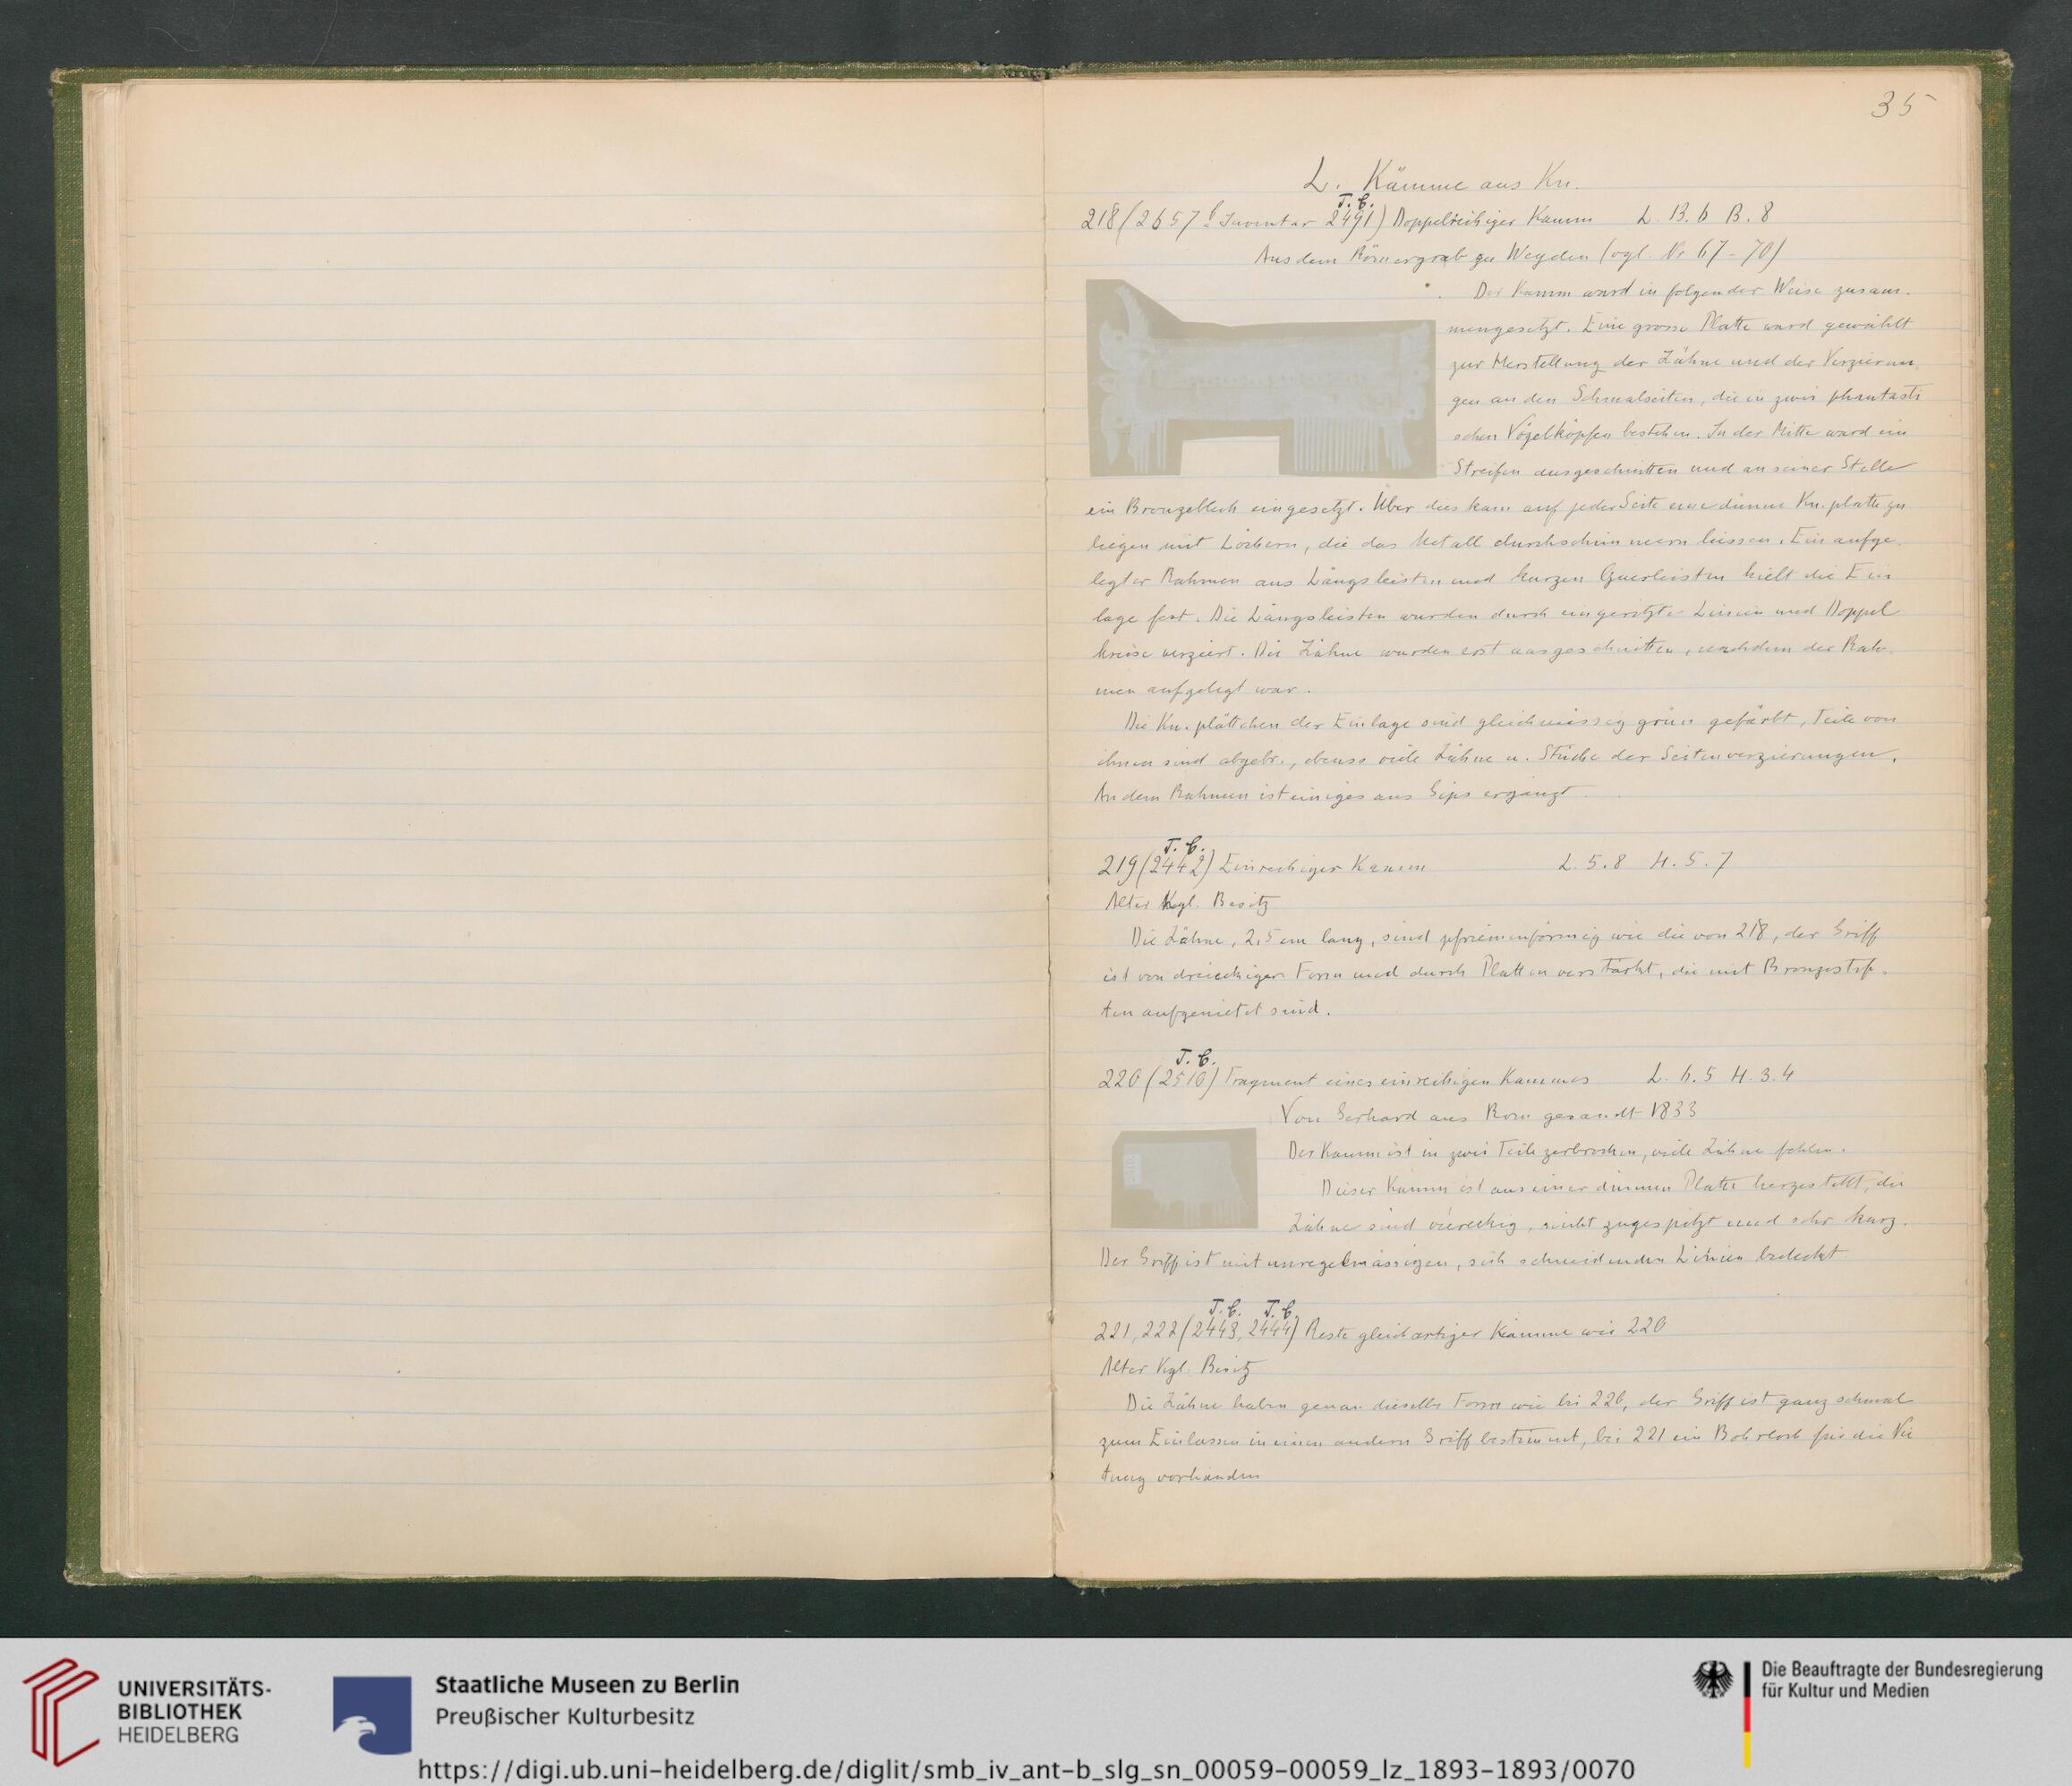 35
L. Kämme aus Kn.
T. C.
218 (2657 b Inventar 2491) Doppelreihiger Kamm L. 13.6 B. 8
Aus dem Römergrab zu Weyden (vgl. Nr 67-70)
Der Kamm ward in folgender Weise zusam-
mengesetzt. Eine grosse Platte ward gewählt
zur Herstellung der Zähne und der Verzierun
gen an den Schmalseiten, die in zwei phantasti
schen Vögelköpfen bestehen. In der Mitte ward ein
Streifen ausgeschnitten und an seiner Stelle
ein Bronzeblech eingesetzt. Über dies kam auf jeder Seite eine dünne Kn. platte zu
liegen mit Löchern, die das Metall durchschimmern liessen. Ein aufge
legter Rahmen aus Längsleisten und kurzen Querleisten hielt die Ein
lage fest. Die Längsleisten wurden durch eingeritzte Linien und Doppel
kreise verziert. Die Zähne wurden erst ausgeschnitten, nachdem der Rah-
men aufgelegt war.
Die Kn. plättchen der Einlage sind gleichmässig grün gefärbt, Teile von
ihnen sind abgebr., ebenso viele Zähne u. Stücke der Seitenverzierungen.
An dem Rahmen ist einiges aus Gips ergänzt.
T. C.
219 (2442) Einreihiger Kamm L. 5.8 H. 5.7
Alter Kgl. Besitz
Die Zähne, 2,5 cm lang, sind pfriemenförmig wie die von 218, der Griff
ist von dreieckiger Form und durch Platten verstärkt, die mit Bronzestif-
ten aufgenietet sind.
T. C.
220 (2510) Fragment eines einreihigen Kammes L. 6.5 H. 3.4
Von Gerhard aus Rom gesandt 1833
Der Kamm ist in zwei Teile zerbrochen, viele Zähne fehlen.
Dieser Kamm ist aus einer dünnen Platte hergestellt, die
Zähne sind viereckig, nicht zugespitzt und sehr kurz.
Der Griff ist mit unregelmässigen, sich schneidenden Linien bedeckt
T. C. T. C.
221, 222 (2443, 2444) Reste gleichartiger Kämme wie 220
Alter Kgl. Besitz
Die Zähne haben genau dieselbe Form wie bei 220, der Griff ist ganz schmal
zum Einlassen in einen andern Griff bestimmt, bei 221 ein Bohrloch für die Nie
tung vorhanden
UNIVERSITÄTS-
BIBLIOTHEK
HEIDELBERG
Staatliche Museen zu Berlin
Preußischer Kulturbesitz
Die Beauftragte der Bundesregierung
für Kultur und Medien
https://digi.ub.uni-heidelberg.de/diglit/smb_iv_ant-b_slg_sn_00059-00059_lz_1893-1893/0070